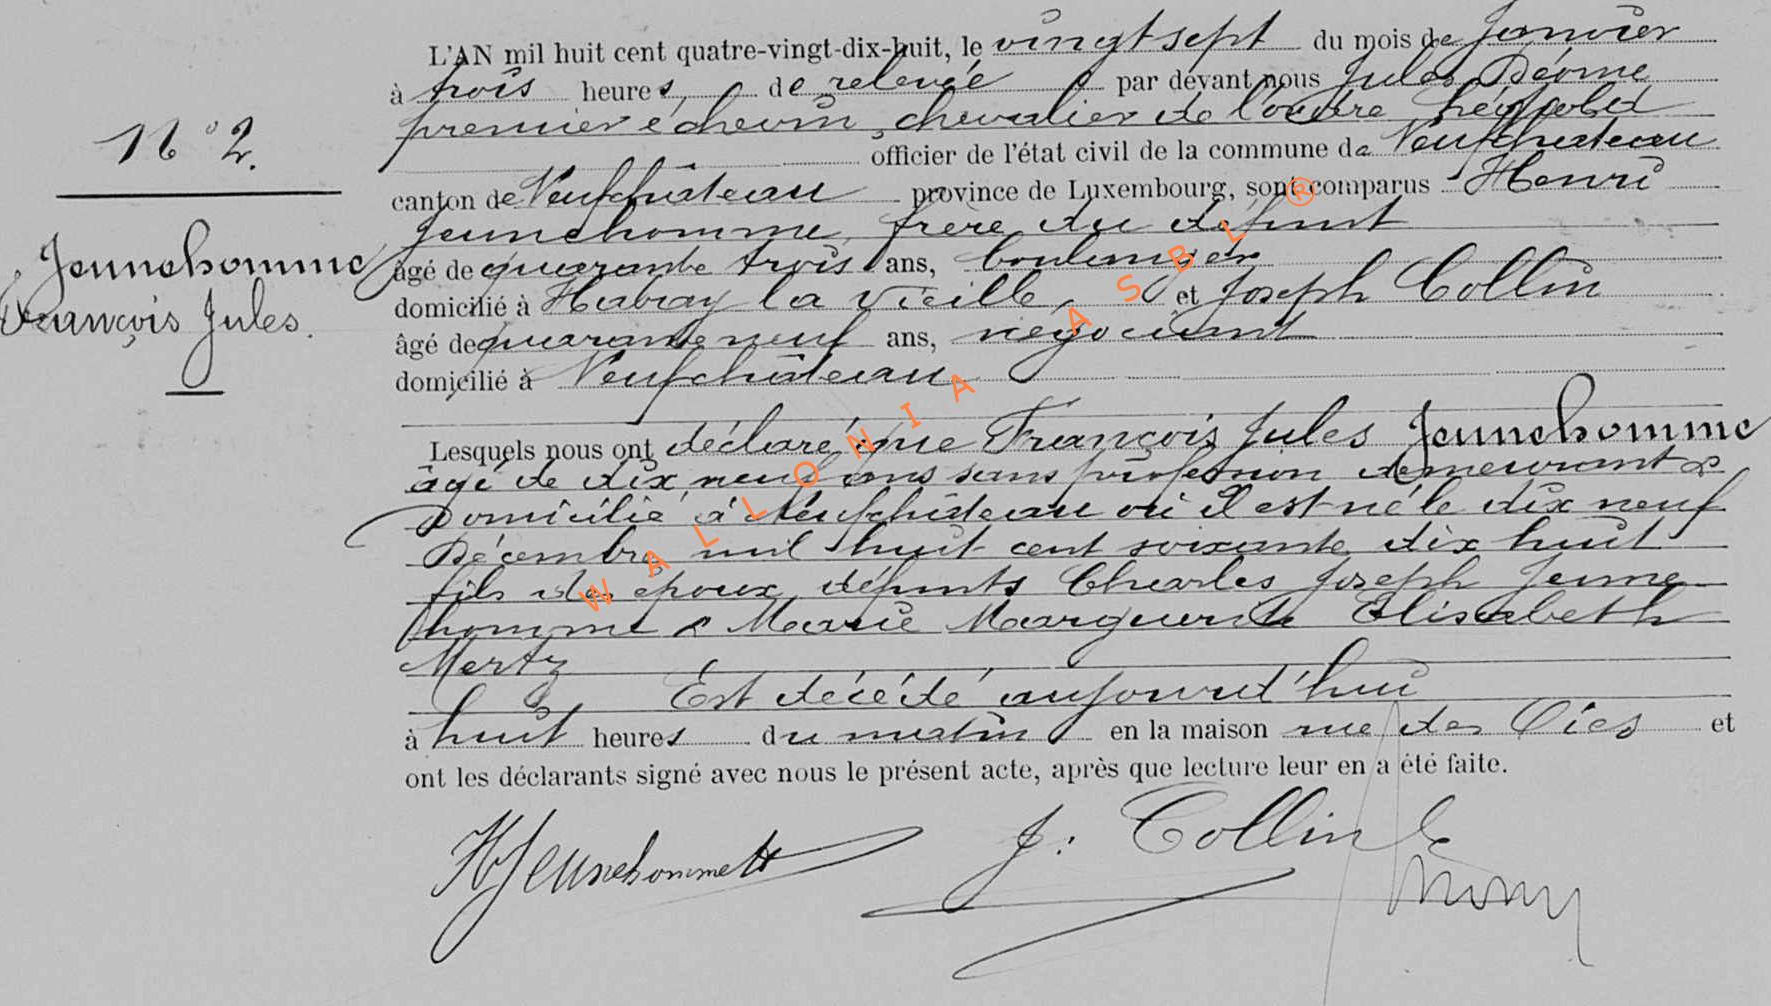 L'AN mil huit cent quatre-vingt-dix-huit, le vingt sept du mois de Janvier
à trois heures, de relevée par devant nous Jules
premier échevin, chevalier de l'ordre Léopold
N° 2.
officier de l'état civil de la commune de Neufchateau
canton de Neufchâteau province de Luxembourg, sont comparus Henri
Jeunehomme, frère du défunt
Jeunehomme
François Jules.
âgé de quarante trois ans, boulanger
domicilié à Habay la vieille, et Joseph Collin
âgé de quarante neuf ans, négociant
domicilié à Neufchâteau
Lesquels nous ont déclaré que François Jules Jeunehomme
âgé de dix neuf ans sans profession demeurant &
Domicilié à Neufchâteau où il est né le dix neuf
Décembre mil huit cent soixante dix huit
fils des époux défunts Charles Joseph Jeune-
homme & Marie Marguerite Elisabeth
Mertz
Est décédé aujourd'hui
à huit heures du matin en la maison rue des et
ont les déclarants signé avec nous le présent acte, après que lecture leur en a été faite.
HJeunehomme J: Collin
WALLONIA ASBL ®